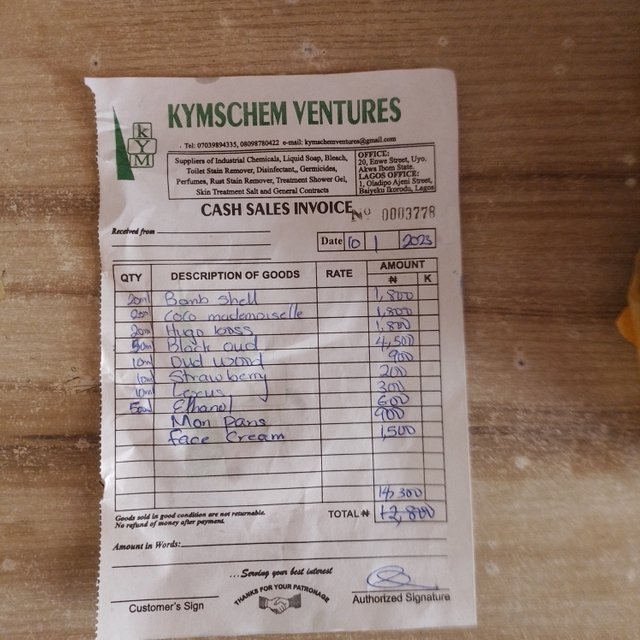 KYM
KYMSCHEM VENTURES
Tel: 07039894335, 08098780422 e-mail: kymschemventures@gmail.com
Suppliers of Industrial Chemicals, Liquid Soap, Bleach,
Toilet Stain Remover, Disinfectant, Germicides,
Perfumes, Rust Stain Remover, Treatment Shower Gel,
Skin Treatment Salt and General Contracts
OFFICE:
20, Enwe Street, Uyo.
Akwa Ibom State.
LAGOS OFFICE:
1, Oladipo Ajeni Street,
Baiyeku Ikorodu, Lagos
CASH SALES INVOICE
Nº 0003778
Received from
Date 10 1 2023
QTY DESCRIPTION OF GOODS RATE AMOUNT
₦ K
20ml Bomb shell 1,800
20ml Coco mademoiselle 1,800
20ml Hugo boss 1,800
50ml Black oud 4,500
10ml Oud wood 900
10ml Strawberry 200
10ml 300
50ml Ethanol 600
Mon Paris 900
Face Cream 1,500
14,300
Goods sold in good condition are not returnable.
No refund of money after payment.
TOTAL ₦ 12,800
Amount in Words:
...Serving your best interest
THANKS FOR YOUR PATRONAGE
Customer's Sign
Authorized Signature